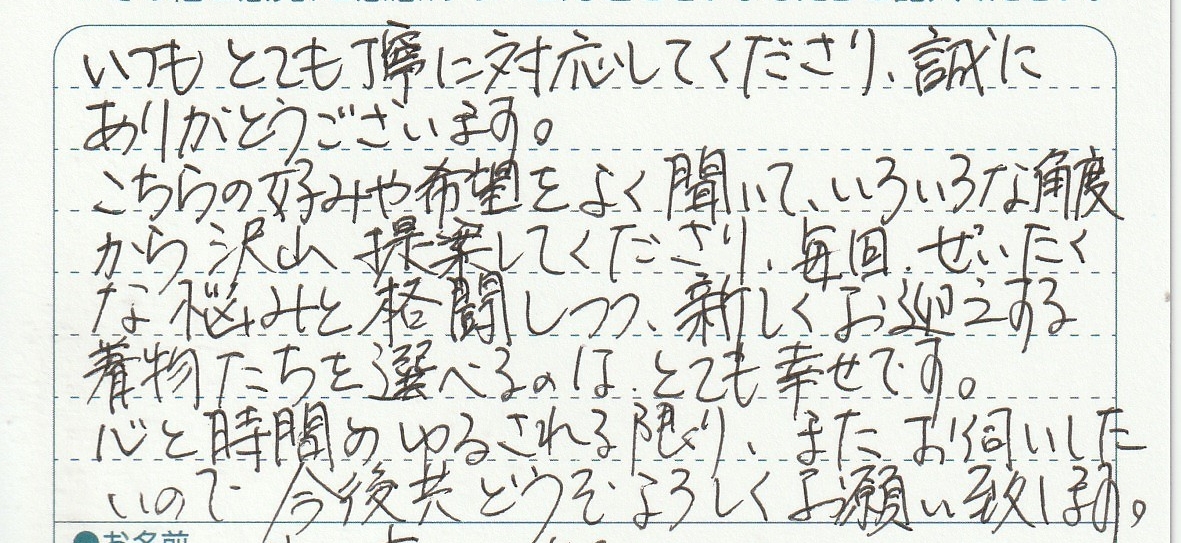 いつもとても丁寧に対応してくださり、誠に
ありがとうございます。
こちらの好みや希望をよく聞いて、いろいろな角度
から沢山提案してくださり、毎回、ぜいたく
な悩みと格闘しつつ、新しくお迎えする
着物たちを選べるのは、とても幸せです。
心と時間のゆるされる限り、またお伺いした
いので、今後共どうぞよろしくお願い致します。
●お名前